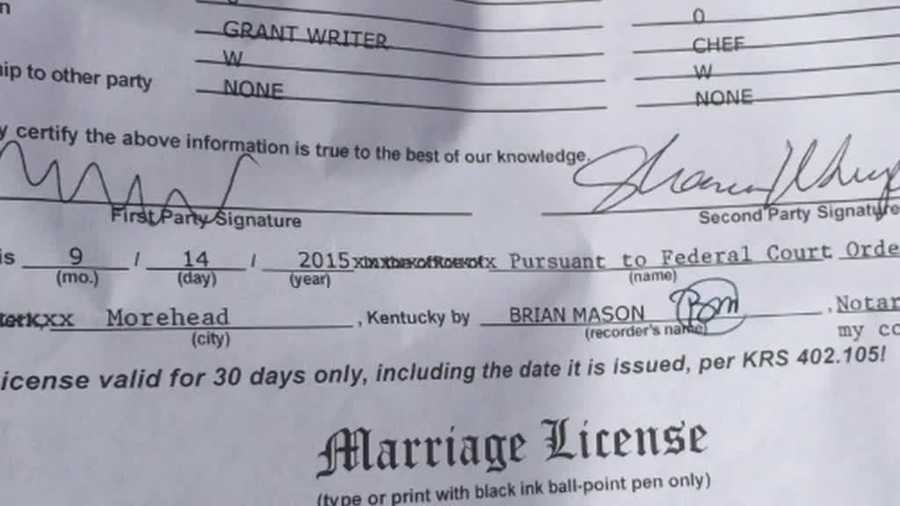 n
0
GRANT WRITER
CHEF
W
W
ip to other party
NONE
NONE
y certify the above information is true to the best of our knowledge.
First Party Signature
Second Party Signature
is 9 / 14 / 2015 Pursuant to Federal Court Orde
(mo.) (day) (year) (name)
Morehead , Kentucky by BRIAN MASON Bm , Notar
(city) (recorder's name) my co
icense valid for 30 days only, including the date it is issued, per KRS 402.105!
Marriage License
(type or print with black ink ball-point pen only)